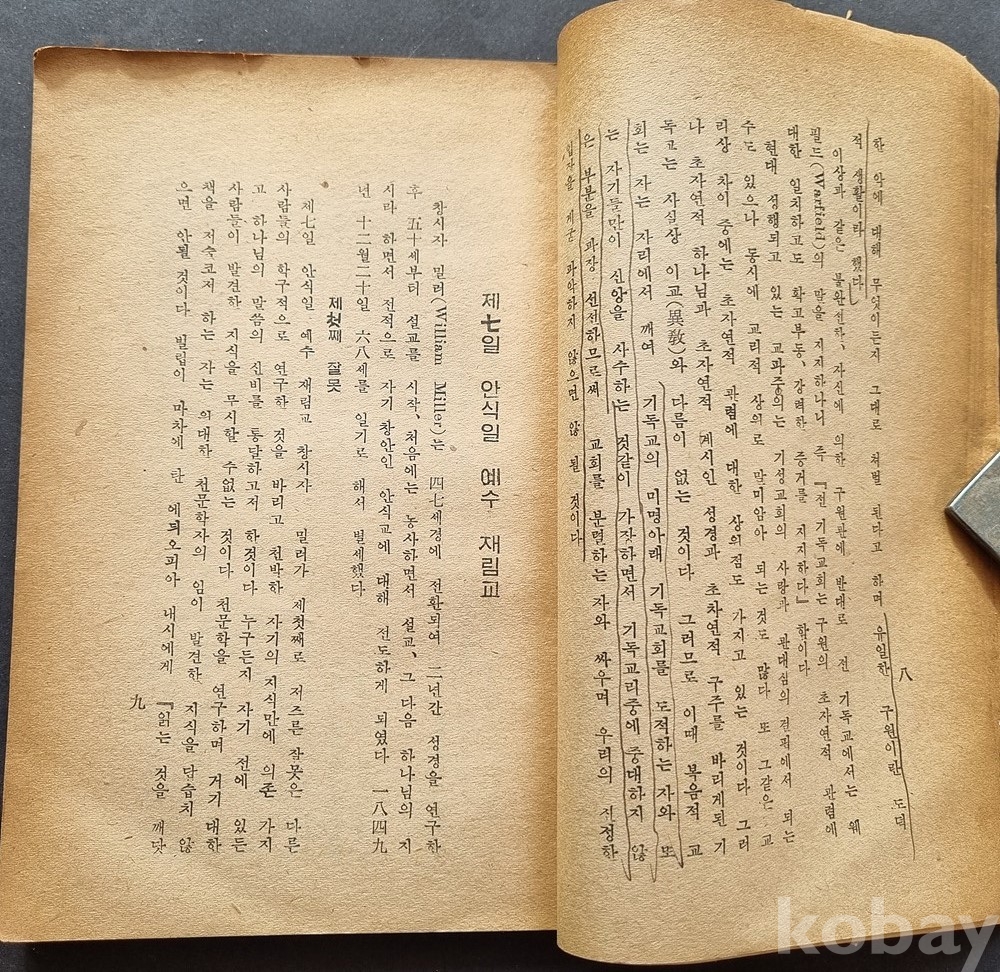 한 악에 대해 무엇이든지 그대로 처벌 된다고 하며 유일한 구원이란 도덕
적 생활이라 했다
이상과 같은 불완전하, 자신에 의한 구원관에 반대로 전 기독교에서는 웨
필드(Warfield)의 말을 지지하나니 즉 『전 기독교회는 구원의 초자연적 관렴에
대한 일치하고도 확고부동, 강력한 증거를 지지하다』 함이다
현대 성행되고 있는 교파중의는 기성교회의 사랑과 관대심의 결핍에서 되는
수도 있으나 동시에 교리적 상의로 말미암아 되는 것도 많다 또 그같은 교
리상 차이 중에는 초자연적 관렴에 대한 상의점도 가지고 있는 것이다 그러
나 초자연적 하나님과 초자연적 계시인 성경과 초차연적 구주를 바리게된 기
독교는 사실상 이교(異敎)와 다름이 없는 것이다 그러므로 이때 복음적 교
회는 자는 자리에서 깨여 기독교의 미명아래 기독교회를 도적하는 자와 또
는 자기들만이 신앙을 사수하는 것같이 가장하면서 기독교리중에 중대하지 않
은 부분을 과장 선전하므로써 교회를 분렬하는 자와 싸우며 우리의 진정한
입장을 게균 파악하지 않으면 않 될 것이다
八
제七일 안식일 예수 재림교
창시자 밀러(William Miller)는 四七세경에 전환되여 二년간 성경을 연구한
후 五十세부터 설교를 시작、처음에는 농사하면서 설교、그 다음 하나님의 지
시라 하면서 전적으로 자기 창안인 안식교에 대해 전도하게 되였다 一八四九
년 十二월二十일 六八세를 일기로 해서 별세했다
제첫째 잘못
제七일 안식일 예수 재림교 창시자 밀러가 제첫째로 저즈른 잘못은 다른
사람들의 학구적으로 연구한 것을 바리고 천박하 자기의 지식만에 의존 가지
고 하나님의 말씀의 신비를 통달하고저 하것이다 누구든지 자기 전에 있든
사람들이 발견하 지식을 무시할 수없는 것이다 천문학을 연구하며 거기 대한
책을 저숙코저 하는 자는 의대하 천문학자의 임이 발견한 지식을 답습치 않
으면 안될 것이다 빌립이 마차에 탄 에듸오피아 내시에게 『읽는 것을 깨닷
九
kobay